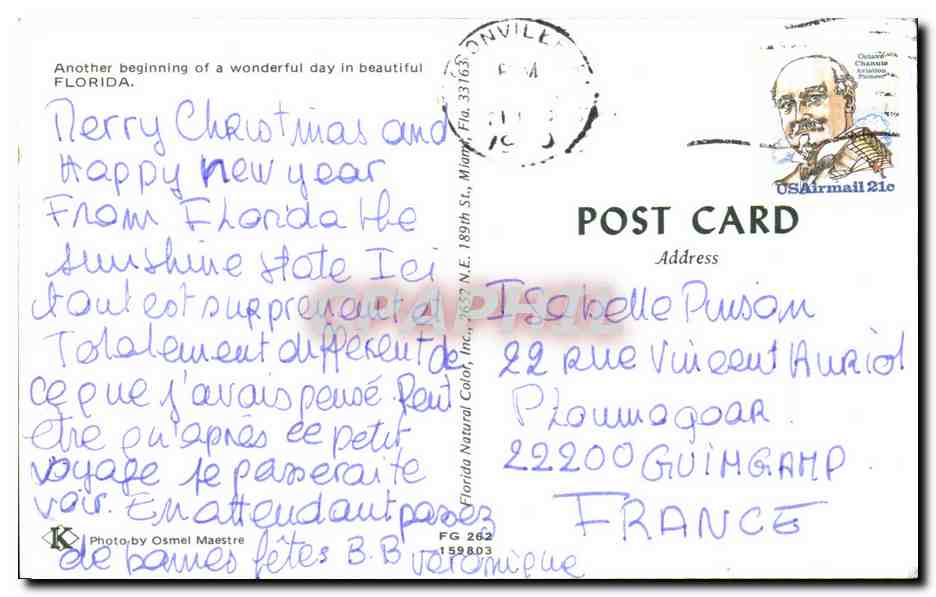 Another beginning of a wonderful day in beautiful
FLORIDA.
Merry Christmas and
Happy New year
From Florida the
sunshine state Ici
tout est surprenant et
Totalement différent de
ce que j'avais pensé. Peut
être qu'après ce petit
voyage je passeraite
voir. En attendant passez
de bonnes fêtes B.B Véronique
K
Photo by Osmel Maestre
FG 262
159803
Florida Natural Color, Inc., 2652 N.E. 189th St., Miami, Fla. 33163
ONVILLE
Octave
Chanute
Aviation
Pioneer
USAirmail 21c
POST CARD
Address
Isabelle
22 rue Vincent Auriol
Ploumagoar
22200 GUIMGAMP
FRANCE